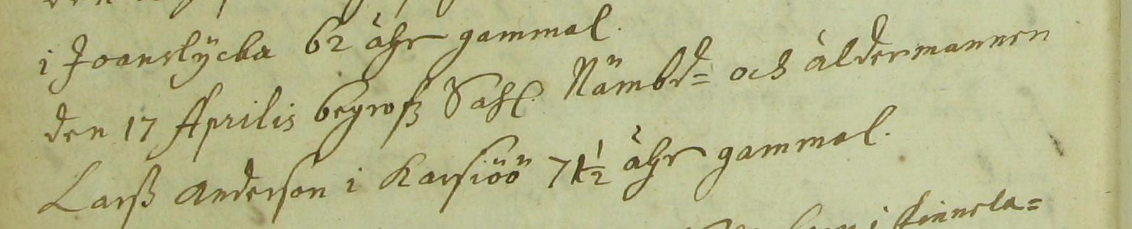 i Joanslÿcka 62 åhr gammal.
den 17 Aprilis begrofz Sahl. Nämbd= och åldermannen
Larß Anderson i Karsiöö 71½ åhr gammal.
i Finnela=